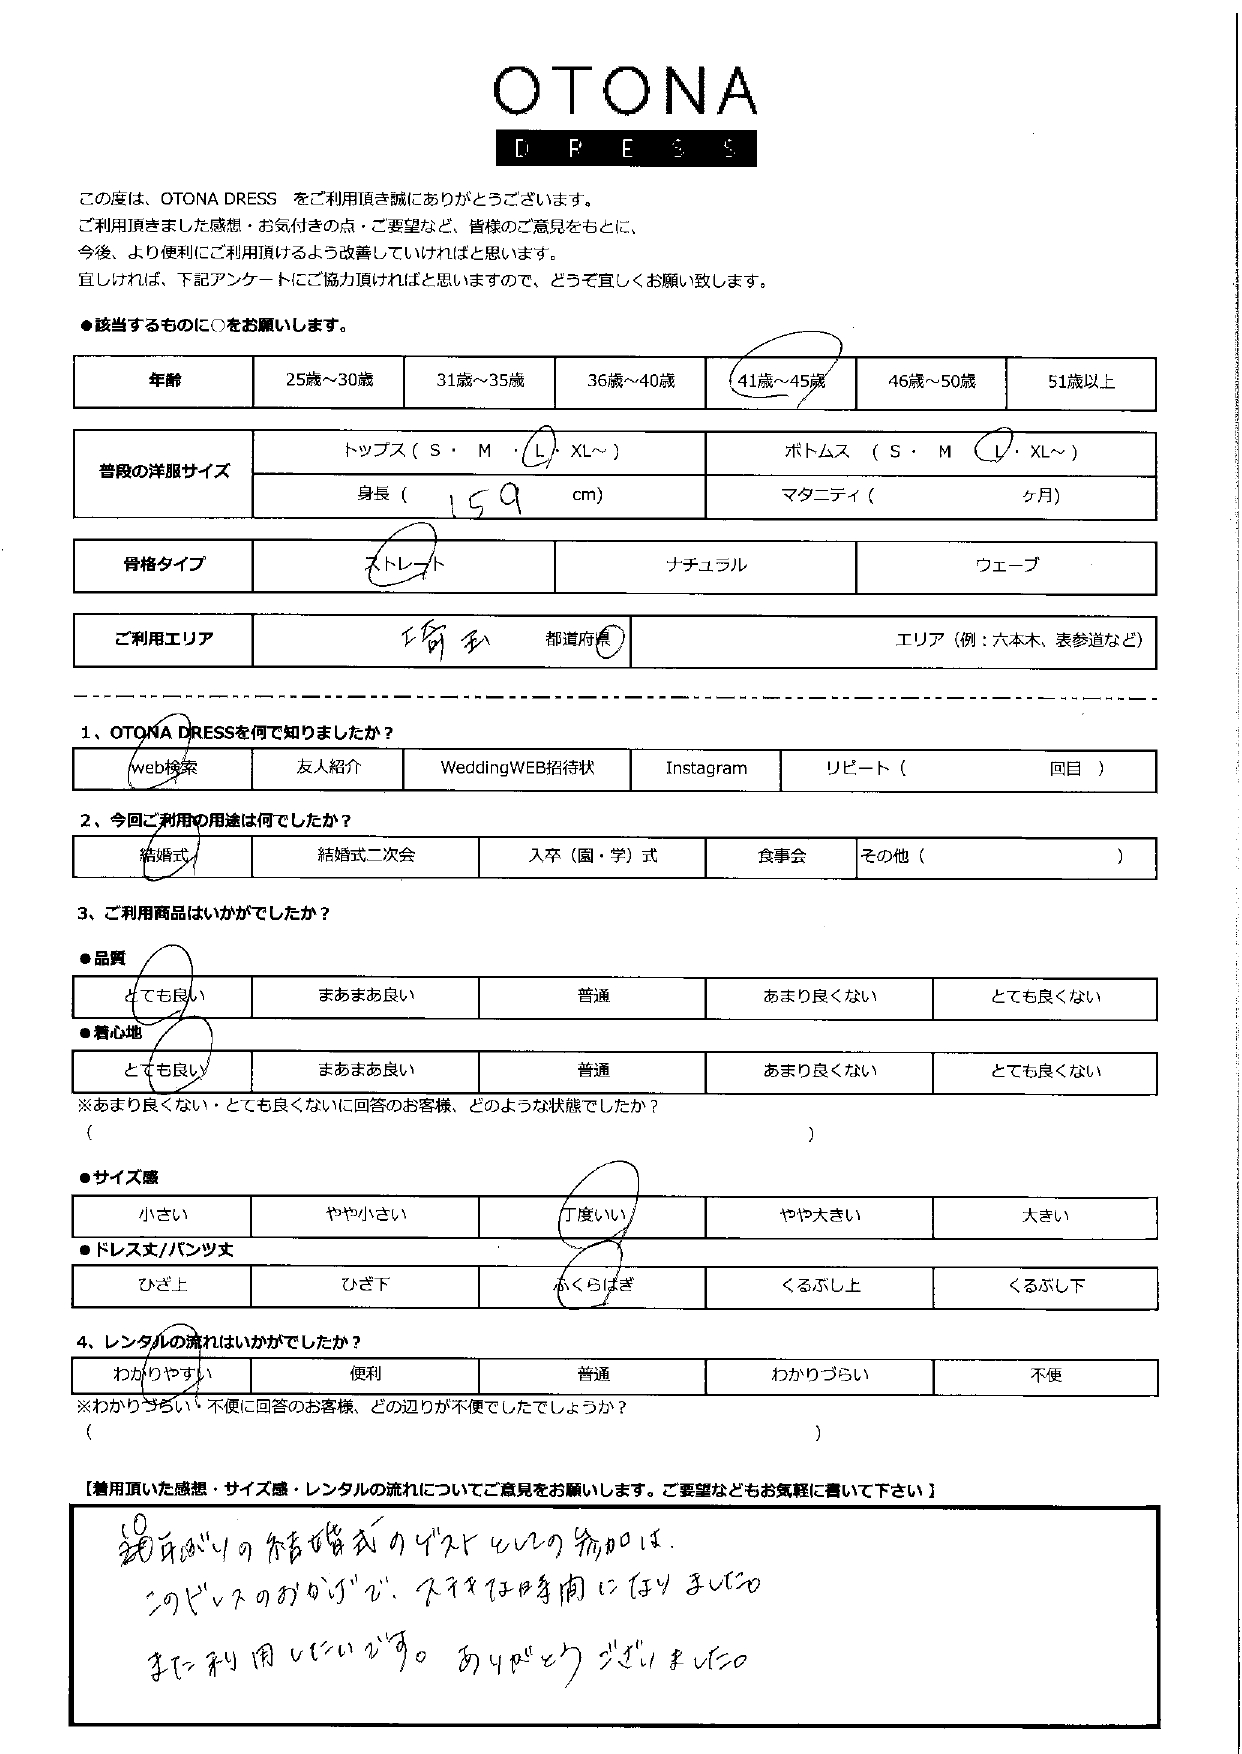 OTONA
DRESS
この度は、OTONA DRESS をご利用頂き誠にありがとうございます。
ご利用頂きました感想・お気付きの点・ご要望など、皆様のご意見をもとに、
今後、より便利にご利用頂けるよう改善していければと思います。
宜しければ、下記アンケートにご協力頂ければと思いますので、どうぞ宜しくお願い致します。
●該当するものに○をお願いします。
年齢 25歳～30歳 31歳～35歳 36歳～40歳 41歳～45歳 46歳～50歳 51歳以上
普段の洋服サイズ トップス ( S ・ M ・ L ・ XL～ ) ボトムス ( S ・ M L ・ XL～ )
身長 ( 159 cm) マタニティ ( ケ月)
骨格タイプ ストレート ナチュラル ウェーブ
ご利用エリア 埼玉 都道府県 エリア（例：六本木、表参道など）
1、OTONA DRESSを何で知りましたか？
web検索 友人紹介 WeddingWEB招待状 Instagram リピート ( 回目 )
2、今回ご利用の用途は何でしたか？
結婚式 結婚式二次会 入卒（園・学）式 食事会 その他 ( )
3、ご利用商品はいかがでしたか？
●品質
とても良い まあまあ良い 普通 あまり良くない とても良くない
●着心地
とても良い まあまあ良い 普通 あまり良くない とても良くない
※あまり良くない・とても良くないに回答のお客様、どのような状態でしたか？
( )
●サイズ感
小さい やや小さい 丁度いい やや大きい 大きい
●ドレス丈/パンツ丈
ひざ上 ひざ下 ふくらはぎ くるぶし上 くるぶし下
4、レンタルの流れはいかがでしたか？
わかりやすい 便利 普通 わかりづらい 不便
※わかりづらい・不便に回答のお客様、どの辺りが不便でしたでしょうか？
( )
【着用頂いた感想・サイズ感・レンタルの流れについてご意見をお願いします。ご要望などもお気軽に書いて下さい】
の結婚式のゲストとしての参加は、
このドレスのおかげで、ステキな時間になりました。
また利用したいです。ありがとうございました。